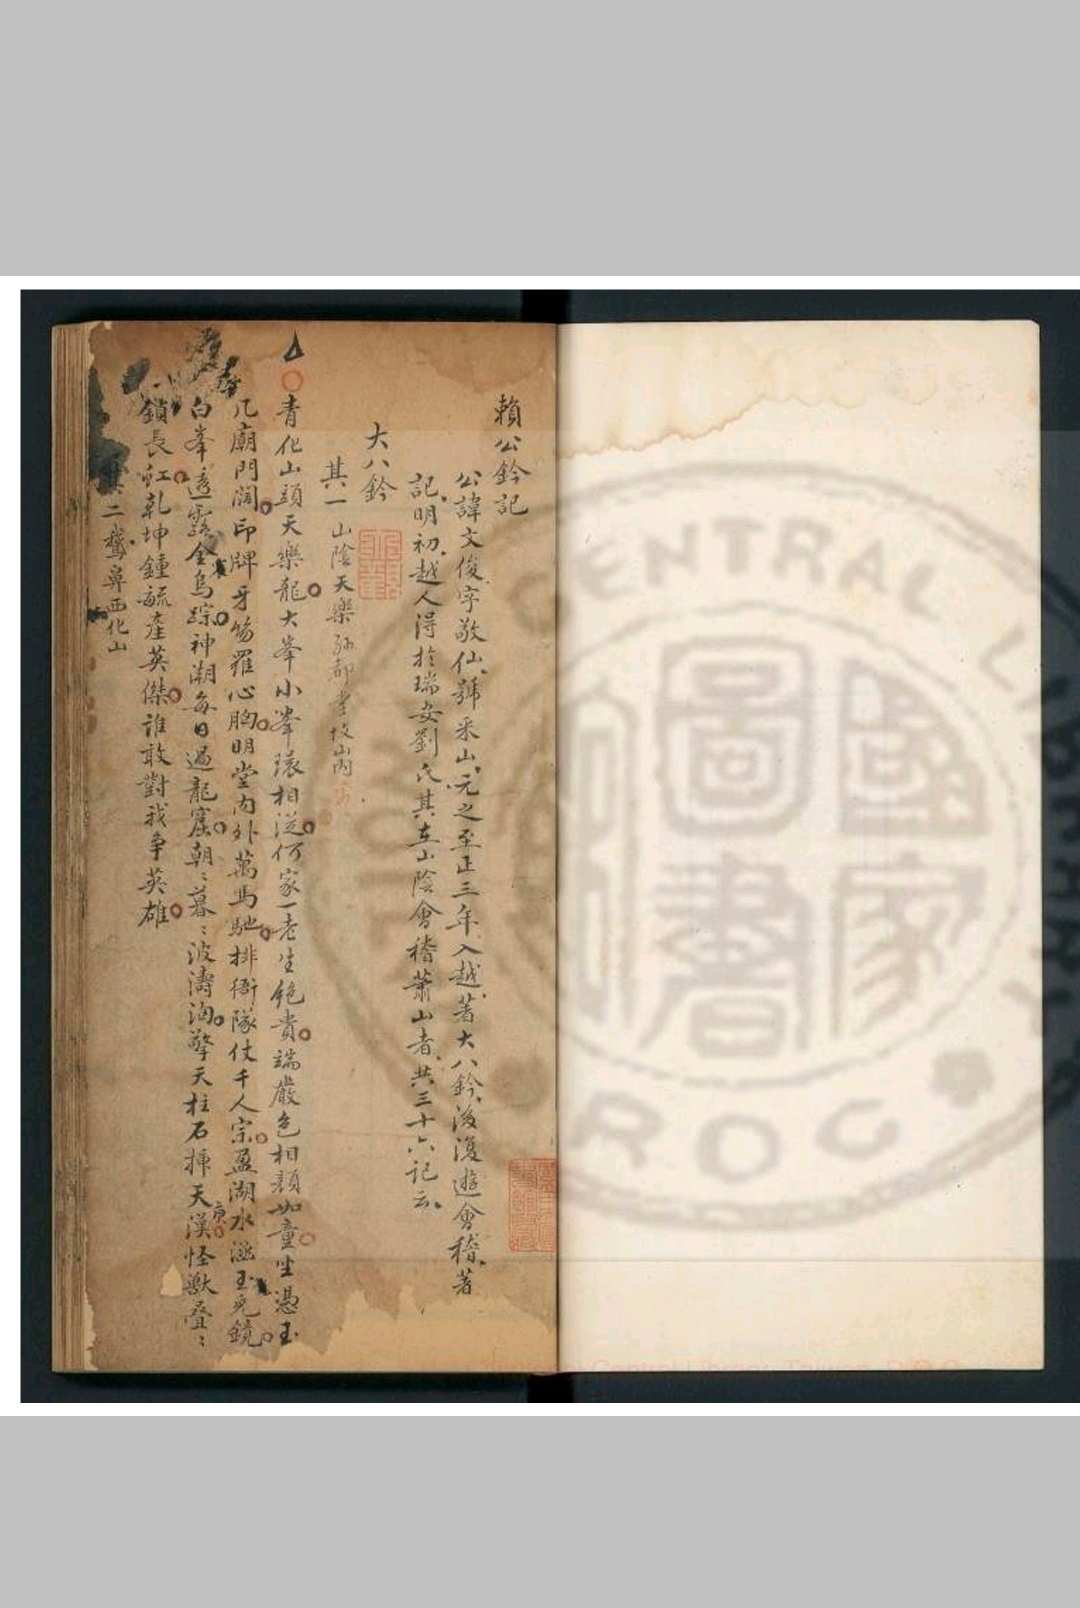 賴公鈐記
公諱文俊字敬仙號釆山元之至正三年入越著大八鈐後復遊會稽著
記明初越人得於瑞安劉氏其在山陰會稽蕭山者共三十六記云
大八鈐
其一 山陰天樂
青化山頭天樂龍大峯小峯環相從何家一老生絶貴端嚴色相顏如童坐憑玉
几廟門闊印牌牙笏羅心胸明堂内外萬馬馳排衙隊仗千人宗盈湖水涵玉兎鏡
白峯透露金烏踪神潮每日過龍窟朝〻暮〻波濤洶擎天柱石插天漢怪獸叠〻
鎖長虹乾坤鍾毓產英傑誰敢對我争英雄
其二 鵞鼻西化山
CENTRAL LI
ROC
國家
圖書